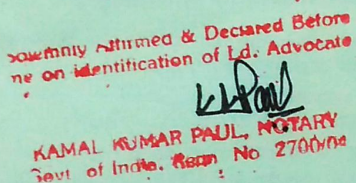 Solemnly Affirmed & Declared Before
me on identification of Ld. Advocate
KKPaul
KAMAL KUMAR PAUL, NOTARY
Govt of India. Regn No 2700/04